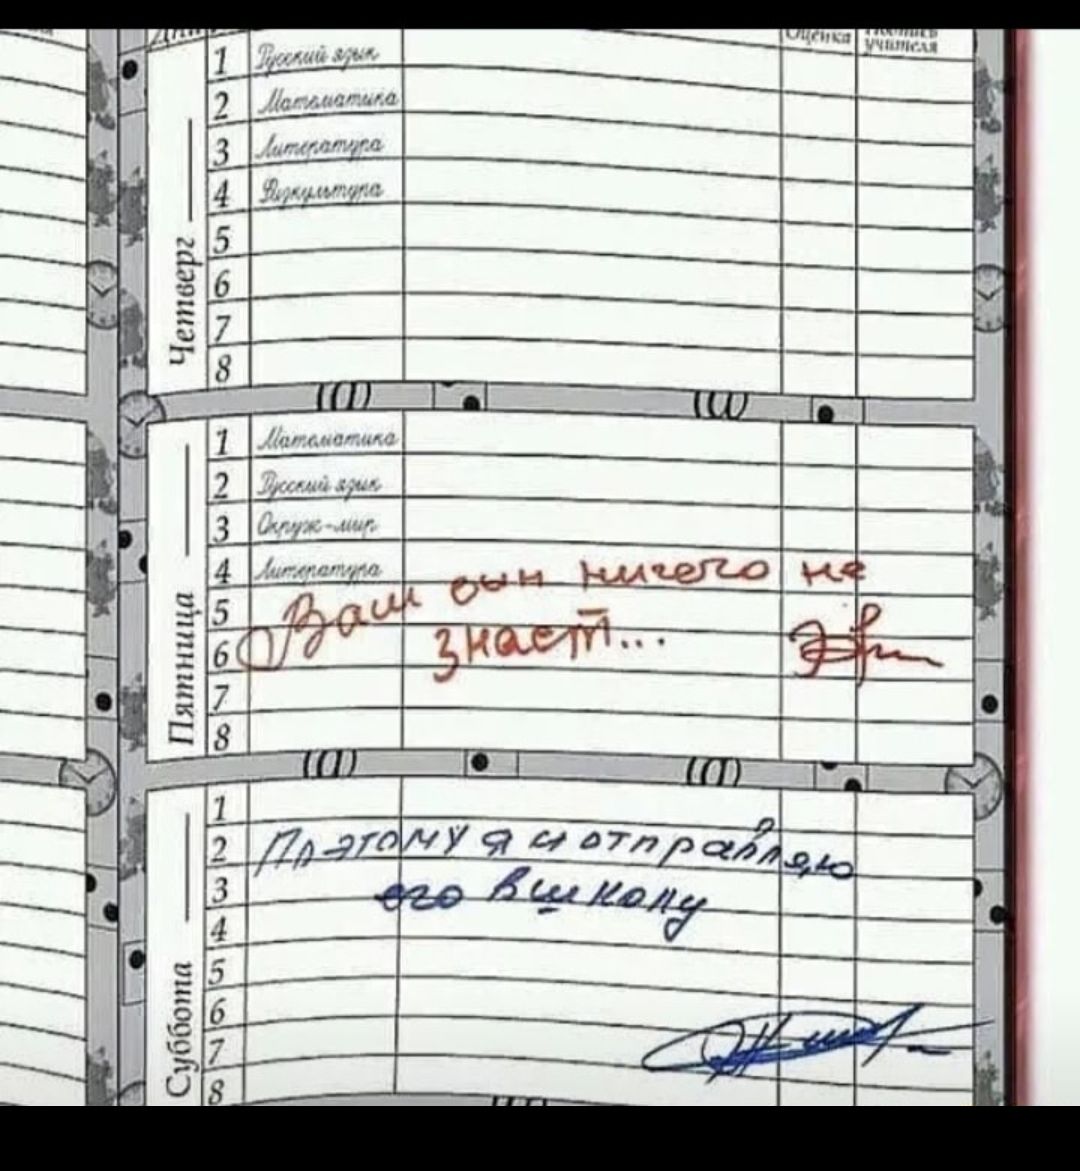 Оценка
Подпись учителя
Четверг
1 Русский язык
2 Математика
3 Литература
4 Физкультура
5
6
7
8
Пятница
1 Математика
2 Русский язык
3 Окруж-мир
4 Литература
5
6
7
8
Ваш сын ничего не
знает...
Суббота
1
2
3
4
5
6
7
8
Поэтому я и отправляю
его в школу